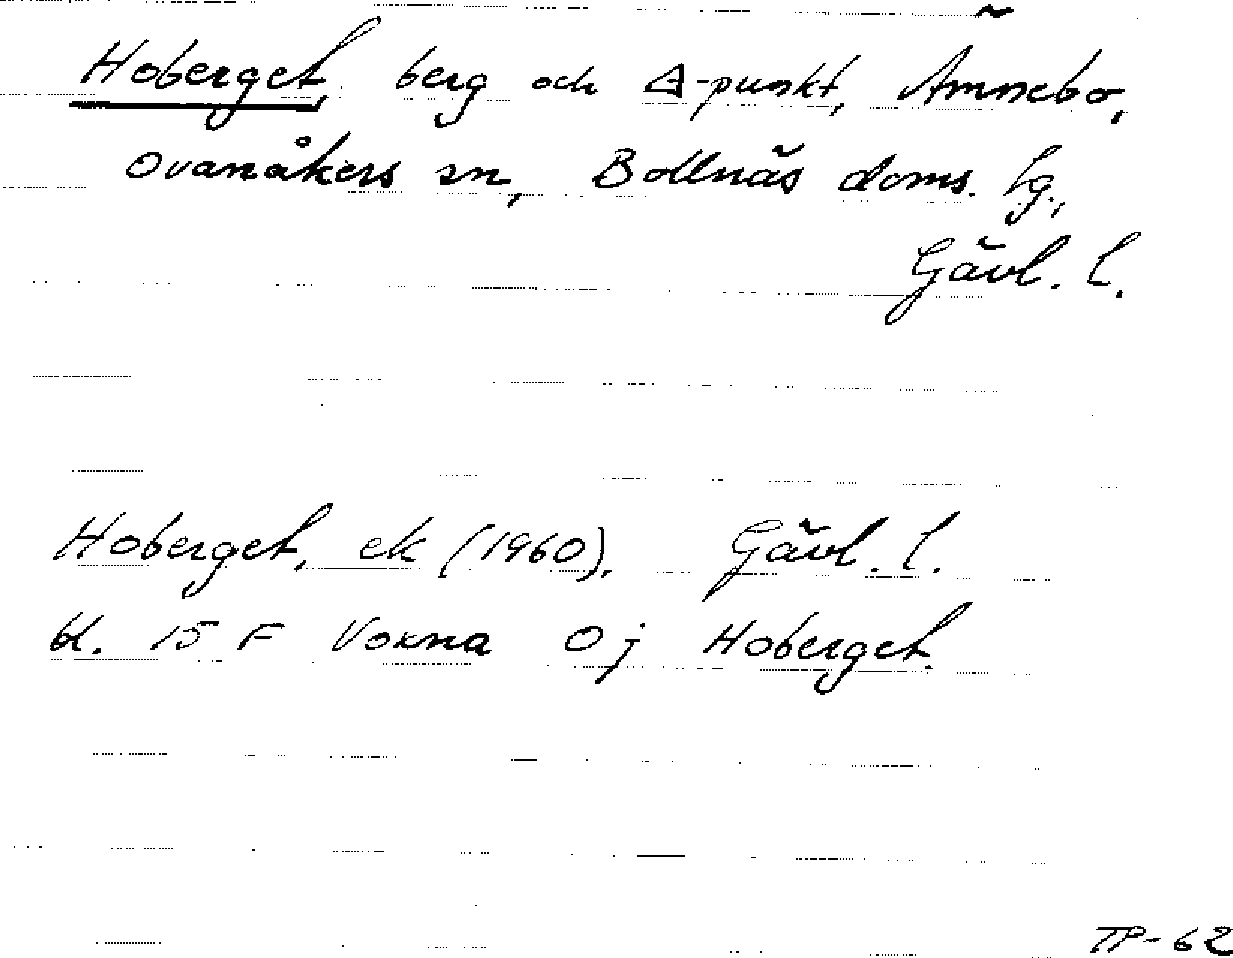 Hoberget, berg och Δ-punkt, Ämnebo,
Ovanåkers sn, Bollnäs doms. lg.,
Gävl. l.
Hoberget, ek (1960). Gävl. l.
bl. 15 F Voxna 0 j Hoberget.
TP-62